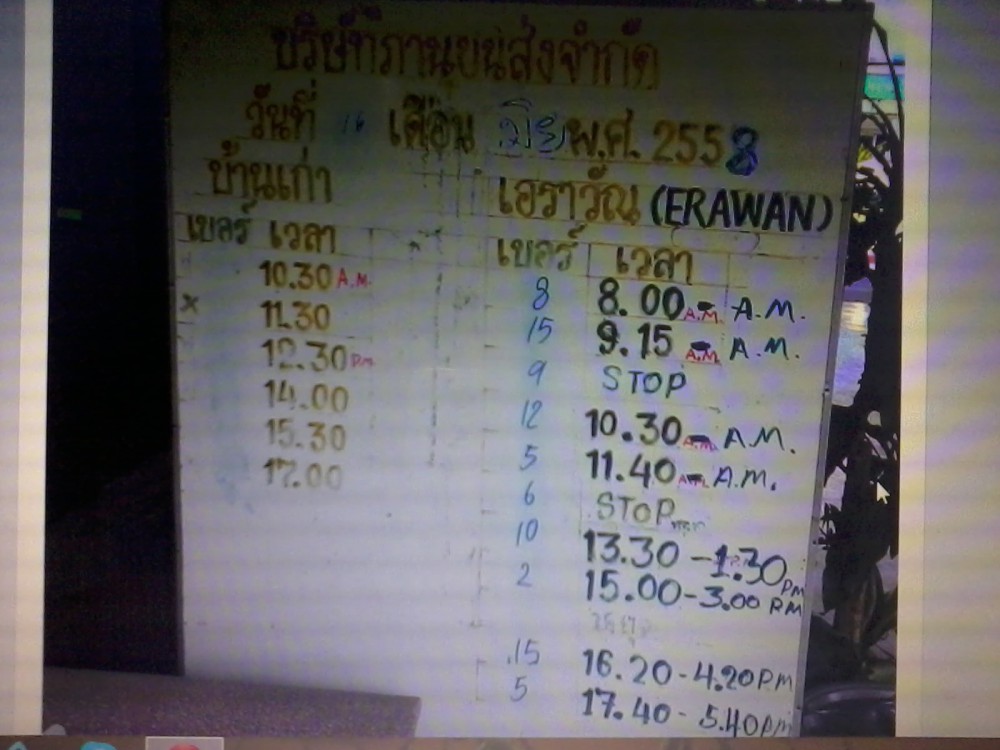 บริษัทภานุขนส่งจำกัด
วันที่ 16 เดือน มิย พ.ศ. 2558
บ้านเก่า
เบอร์ เวลา
10.30 A.M.
x 11.30
12.30 P.m
14.00
15.30
17.00
เอราวัณ (ERAWAN)
เบอร์ เวลา
8 8.00 A.M. A.M.
15 9.15 A.M. A.M.
9 STOP
12 10.30 A.M. A.M.
5 11.40 A.M. A.M.
6 STOP
10 13.30 - 1.30 PM
2 15.00 - 3.00 PM
15 16.20 - 4.20 PM
5 17.40 - 5.40 pm